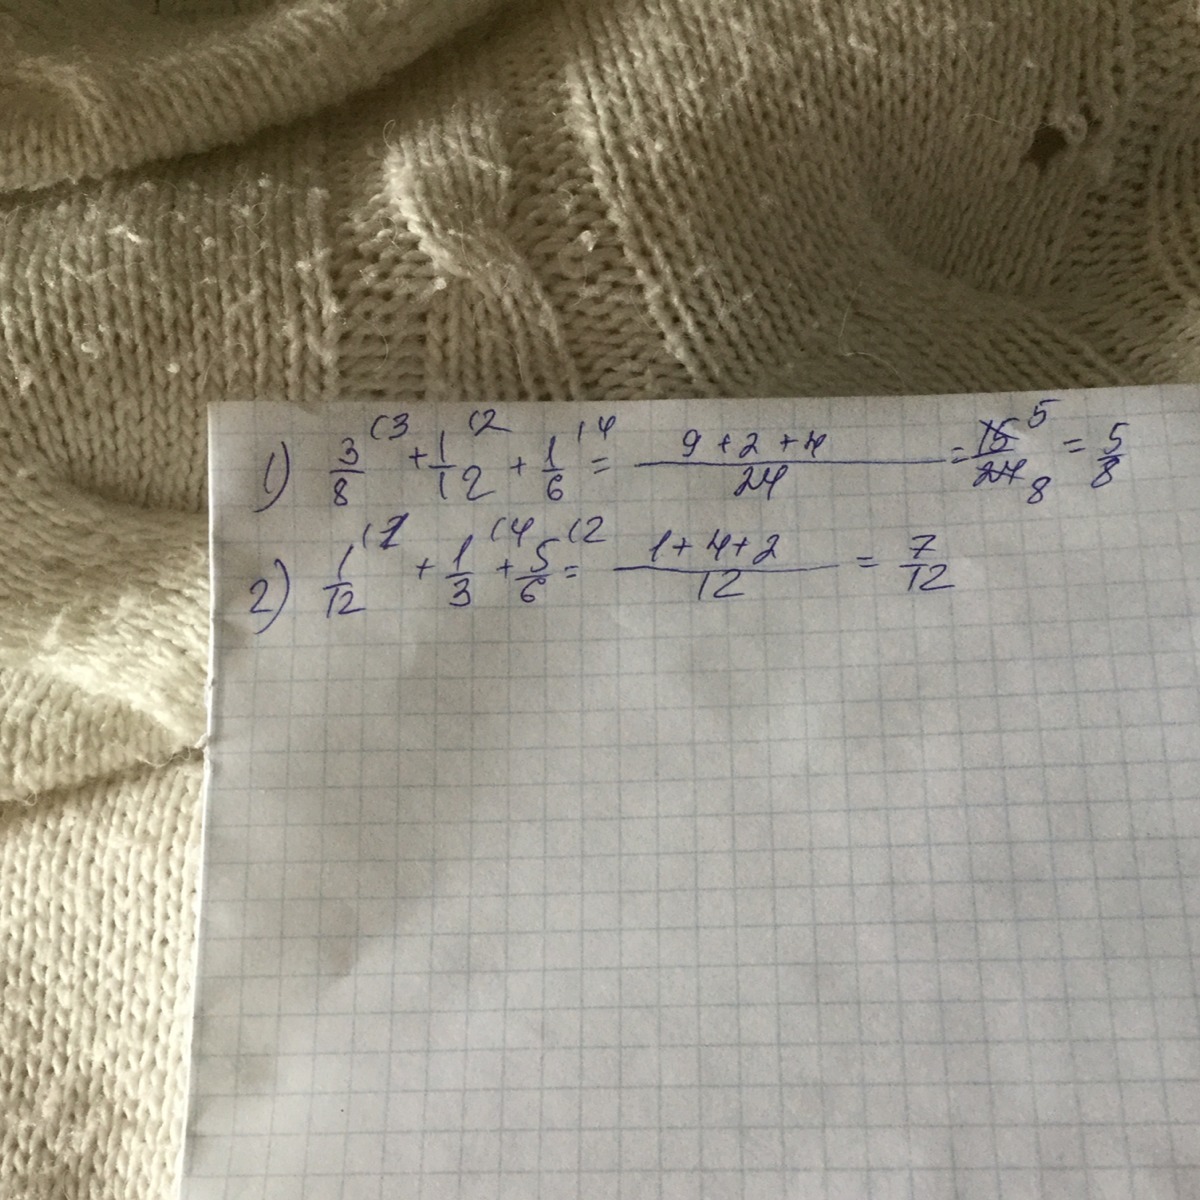 1) 3/8 (3 + 1/12 (2 + 1/6 (4 = 9+2+4/24 = 15/24 5 8 = 5/8
2) 1/12 (1 + 1/3 (4 + 5/6 (2 = 1+4+2/12 = 7/12